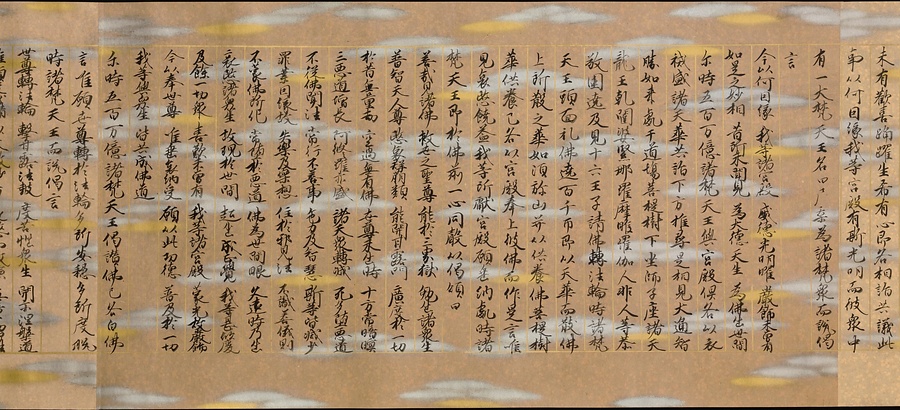 未有歡喜踊躍生希有心即各相詣共議此
事以何因緣我等宮殿有斯光明而彼衆中
有一大梵天王名曰尸棄為諸梵衆而說偈
言
今以何因緣 我等諸宮殿 威德光明曜 嚴飾未曾有
如是之妙相 昔所未聞見 為大德天生 為佛出世間
尒時五百万億諸梵天王與宮殿俱各以衣
裓盛諸天華共詣下方推尋是相見大通智
勝如來處于道場菩提樹下坐師子座諸天
龍王乾闥婆緊那羅摩睺羅伽人非人等恭
敬圍遶及見十六王子請佛轉法輪時諸梵
天王頭面礼佛遶百千帀即以天華而散佛
上所散之華如須弥山并以供養佛菩提樹
華供養已各以宮殿奉上彼佛而作是言唯
見哀愍饒益我等所獻宮殿願垂納處時諸
梵天王即於佛前一心同聲以偈頌曰
善哉見諸佛 救世之聖尊 能於三界獄 勉出諸衆生
普智天人尊 哀愍群萌類 能開甘露門 廣度於一切
於昔無量劫 空過無有佛 世尊未出時 十方常暗瞑
三惡道增長 阿修羅亦盛 諸天衆轉減 死多墮惡道
不從佛聞法 常行不善事 色力及智慧 斯等皆減少
罪業因緣故 失樂及樂想 住於邪見法 不識善儀則
不蒙佛所化 常墮於惡道 佛為世間眼 久遠時乃出
哀愍諸衆生 故現於世間 超出成正覺 我等甚欣慶
及餘一切衆 喜歎未曾有 我等諸宮殿 蒙光故嚴飾
今以奉世尊 唯垂哀納受 願以此功德 普及於一切
我等與衆生 皆共成佛道
尒時五百万億諸梵天王偈讚佛已各白佛
言唯願世尊轉於法輪多所安穩多所度脫
時諸梵天王而說偈言
世尊轉法輪 擊甘露法鼓 度苦惱衆生 開示涅槃道